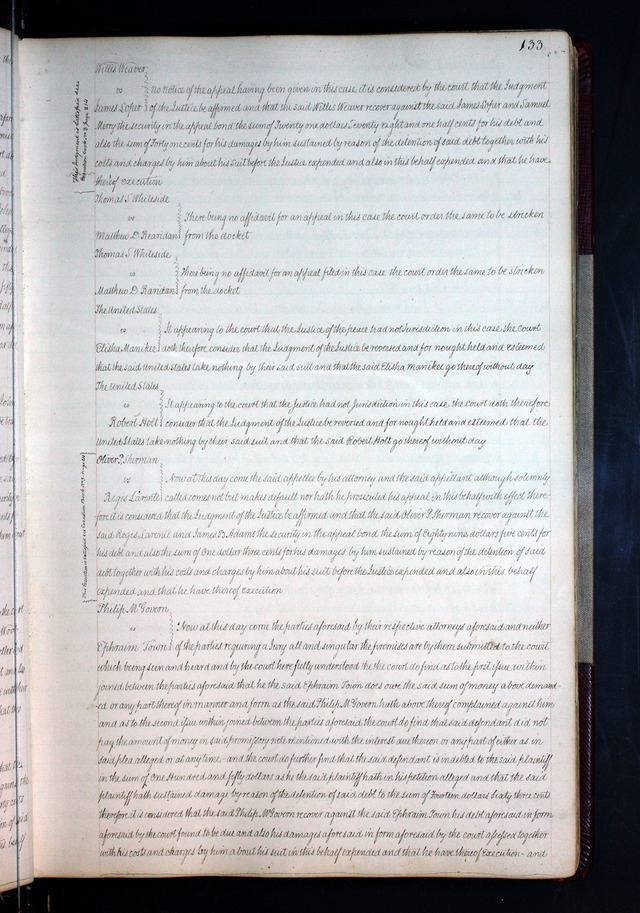 133
Willis Weaver
vs No notice of the appeal having been given in this case, it is considered by the court that the Judgment
James Loper of the Justice be affirmed and that the said Willis Weaver recover against the said James Loper and Samuel
Merry the security in the appeal bond the sum of Twenty one dollars Seventy eight and one half cents for his debt and
also the sum of Forty one cents for his damages by him sustained by reason of the detention of said debt together with his
costs and charges by him about his suit before the Justice expended and also in this behalf expended and that he have
thereof execution
Thomas S. Whiteside
vs There being no affidavit for an appeal in this case the court order the same to be stricken
Matthew D Reandan from the docket
Thomas S. Whiteside
vs There being no affidavit for an appeal filed in this case the court order the same to be stricken
Matthew D. Randan from the docket
The United States
vs It appearing to the court that the Justice of the peace had not Jurisdiction in this case the court
Elisha Manikee doth therefore consider that the Judgment of the Justice be reversed and for nought held and esteemed
that the said United States take nothing by their said suit and that the said Elisha Manikee go thereof without day
The United States
vs It appearing to the court that the Justice had not Jurisdiction in this case, the court doth therefore
Robert Holt consider that the Judgment of the Justice be reversed and for nought held and esteemed that the
United States take nothing by their said suit and that the said Robert Holt go thereof without day
Oliver P. Sherman
vs Now at this day come the said appellee by his attorney and the said appellant although solemnly
Regis Larente called comes not but makes default nor hath he prosecuted his appeal in this behalf with effect there-
fore it is considered that the Judgment of the Justice be affirmed and that the said Oliver P. Sherman recover against the
said Regis Larente and James D. Adams the security in the appeal bond the sum of Eighty nine dollars five cents for
his debt and also the sum of One dollar three cents for his damages by him sustained by reason of the detention of said
debt together with his costs and charges by him about his suit before the Justice expended and also in this behalf
expended and that he have thereof execution
Philip McGovern
vs Now at this day come the parties aforesaid by their respective attorneys aforesaid and neither
Ephraim Town of the parties requiring a Jury all and singular the premises are by them submitted to the court
which being seen and heard and by the court here fully understood the the court do find as to the first issue within
joined between the parties aforesaid that he the said Ephraim Town does owe the said sum of money above demand-
ed or any part thereof in manner and form as the said Philip McGovern hath above thereof complained against him
and as to the second issue within joined between the parties aforesaid the court do find that said defendant did not
pay the amount of money in said promissory note mentioned with the interest due thereon or any part of either as in
said plea alleged or at any time,- and the court do further find that the said defendant is indebted to the said plaintiff
in the sum of One Hundred and fifty dollars as he the said plaintiff hath in his petition alleged and that the said
plaintiff hath sustained damage by reason of the detention of said debt to the sum of Fourteen dollars Sixty three cents
therefore it is considered that the said Philip McGovern recover against the said Ephraim Town his debt aforesaid in form
aforesaid by the court found to be due and also his damages aforesaid in form aforesaid by the court assessed together
with his costs and charges by him about his suit in this behalf expended and that he have thereof execution - and